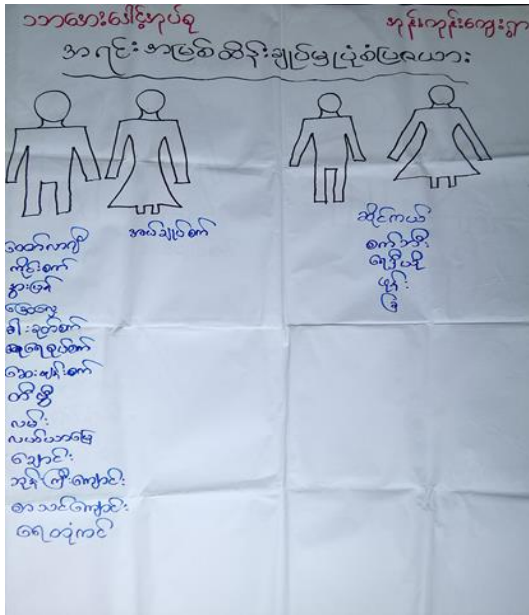 သဘာဝပေါင်းအုပ်စု
အုန်းကုန်းကျေးရွာ
အရင်းအမြစ်ထိန်းချုပ်မှုပုံစံပြဇယား
ထော်လာဂျီ
ကိုင်းစက်
နွားမြန်
မြေလှေ
ဓါးခုတ်စက်
ရေစုပ်စက်
ဆေးဖျန်းစက်
တီဗွီ
လမ်း
လယ်ယာမြေ
ချောင်း
ဘုန်းကြီးကျောင်း
စာသင်ကျောင်း
ရေတုံကင်
အပ်ချုပ်စက်
ဆိုင်ကယ်
စက်ဘီး
ရေဒီယို
ဖုန်း
ခြံ